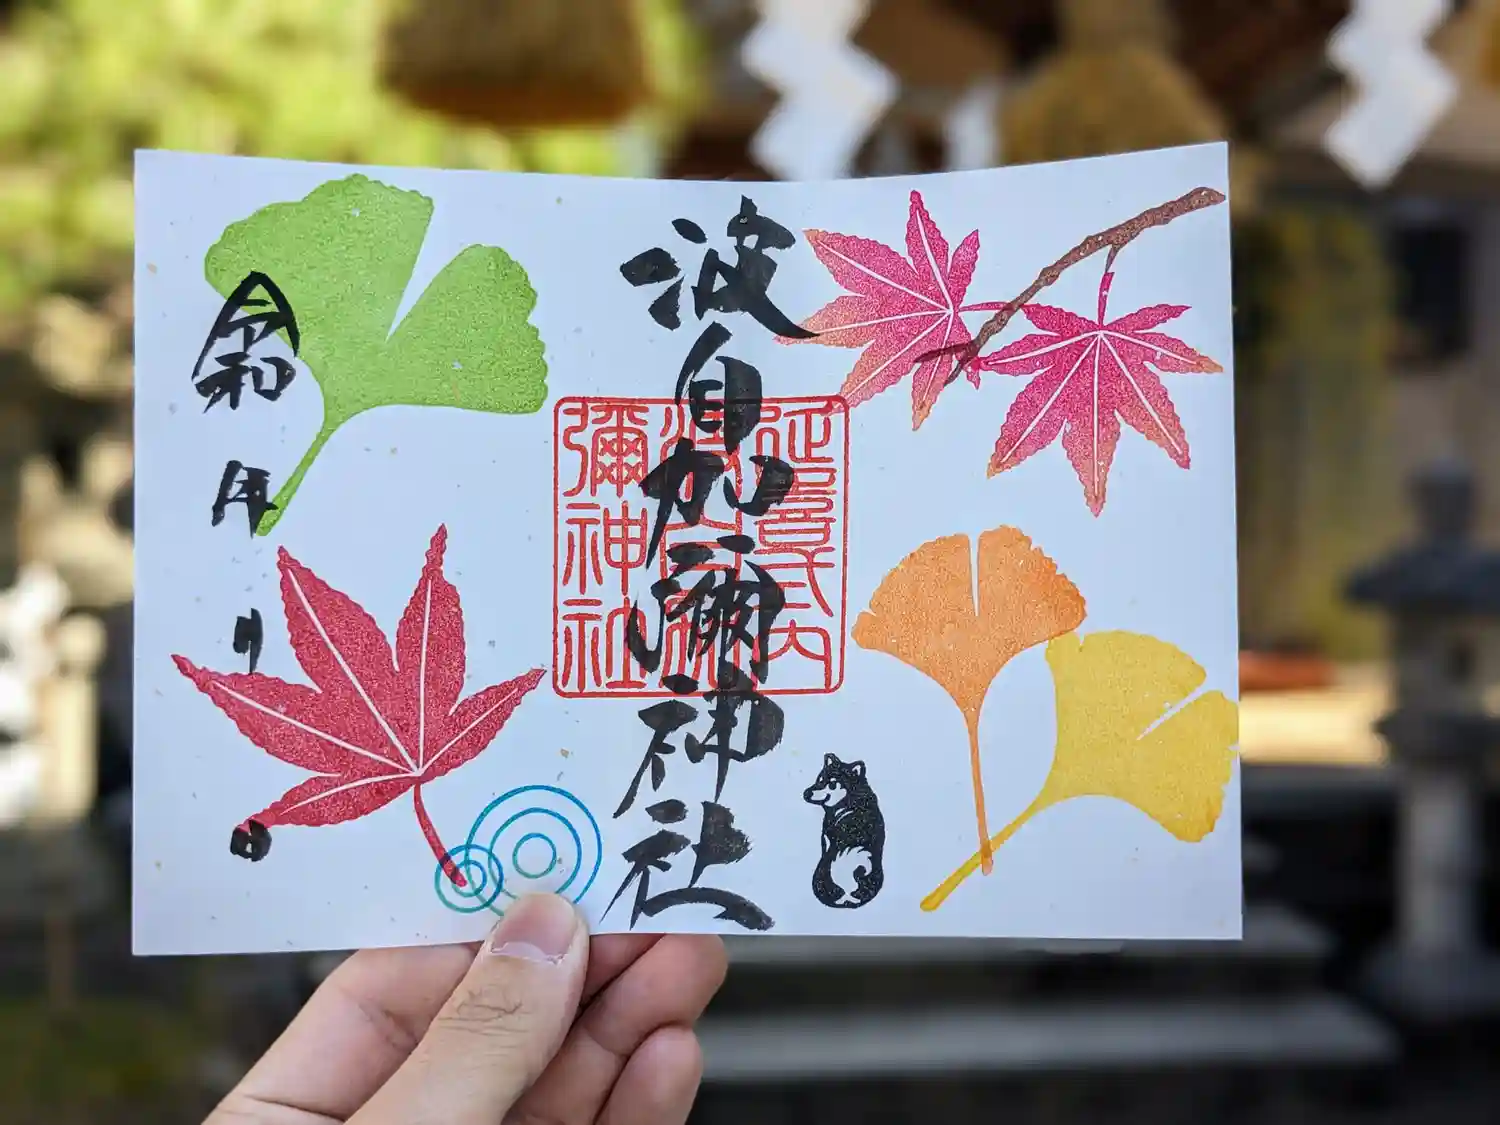 波自加彌神社
延喜式内
波自加彌神社
令和 年 月 日